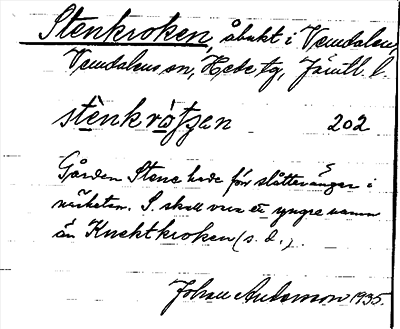 Stenkroken, åbukt i Vemdalen,
Vemdalens sn, Hede tg, Jämtl. l.
stènkrò̀tjen 202
Gården Stene hade för slåtteränger i
närheten. S. skall vara ett yngre namn
än Knektkroken (s. d.).
Johan Anderson 1935.